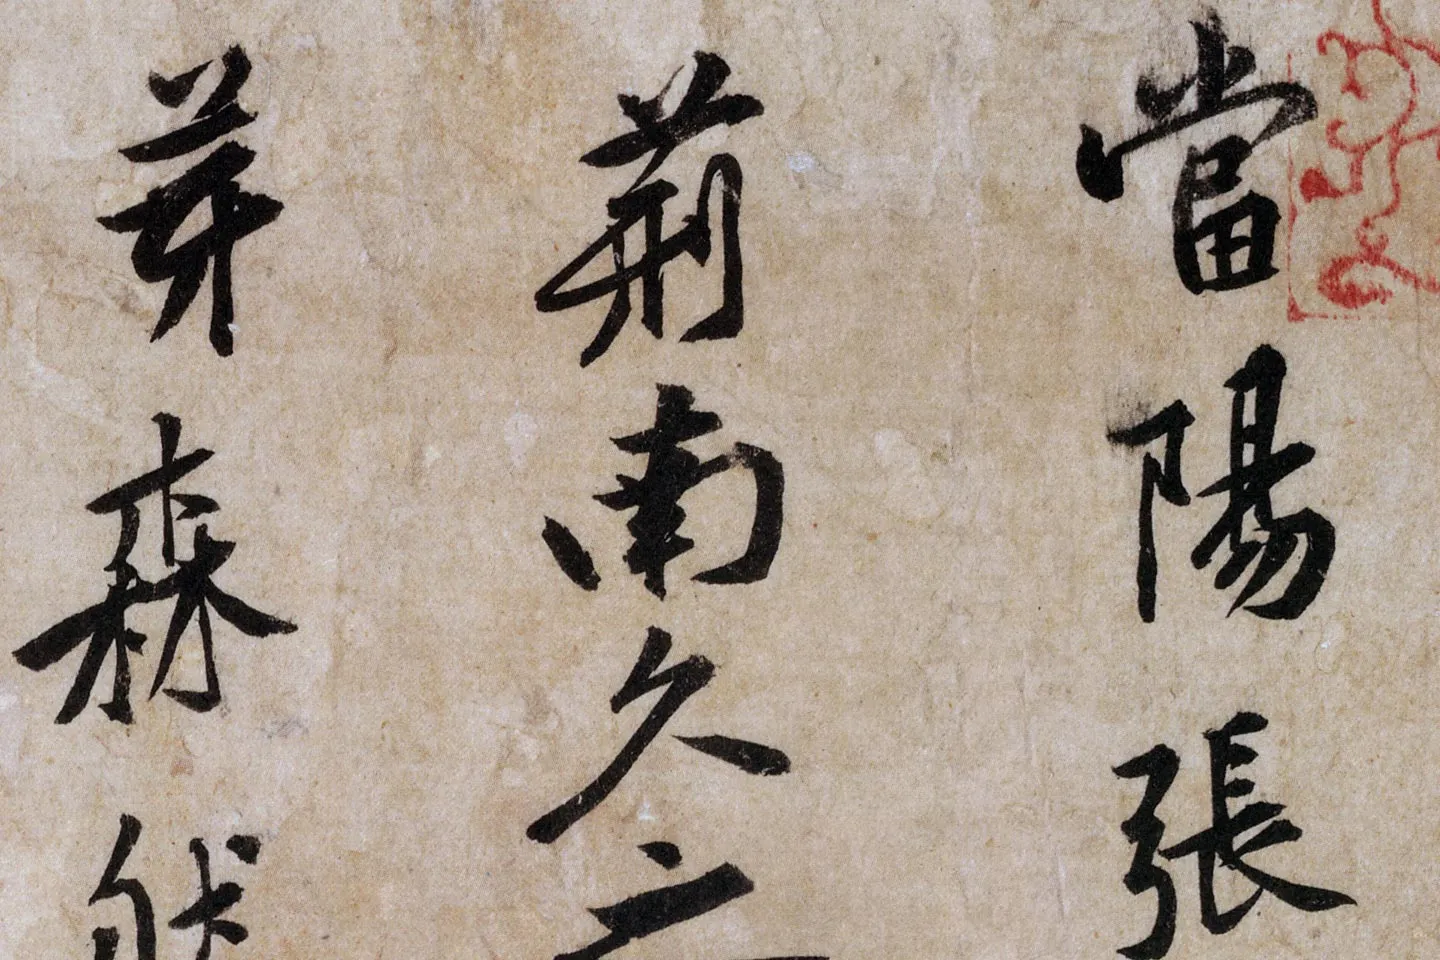 當陽張
荊南久之
芽森然